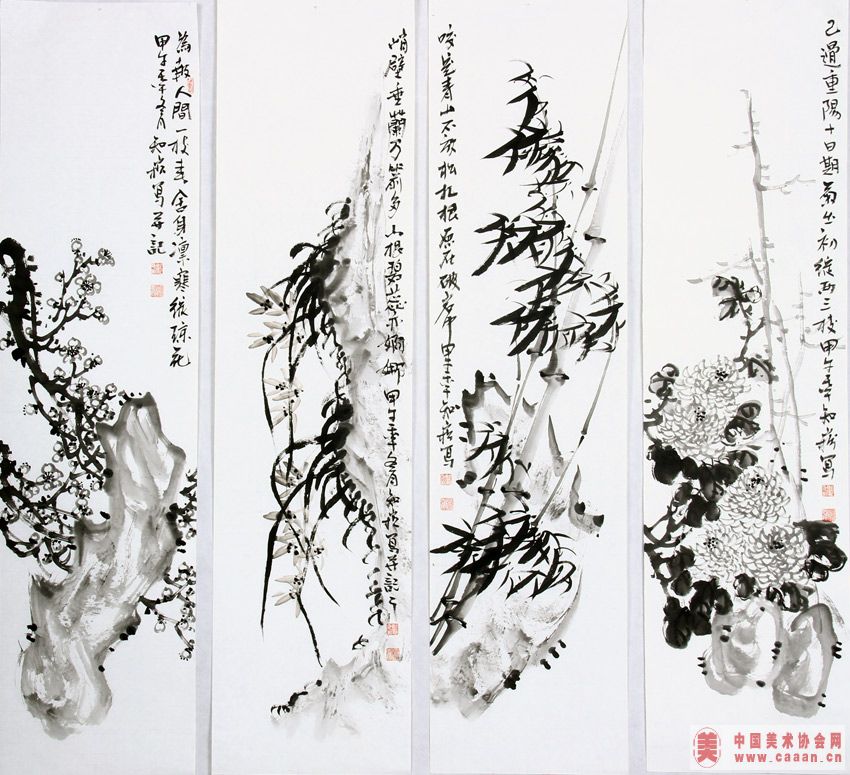 為報人間一枝春舍身凛寒綻琼花
甲午年冬月知 寫并記
峭壁垂蘭乃箭多山根碧蕊亦婀娜甲午年冬月知 寫并記之
咬定青山不放松扎根原在破岩中甲午年知 寫
已過重陽十日期菊丛初綻两三枝甲午年知 寫
美 中国美术协会网
www.caaan.cn